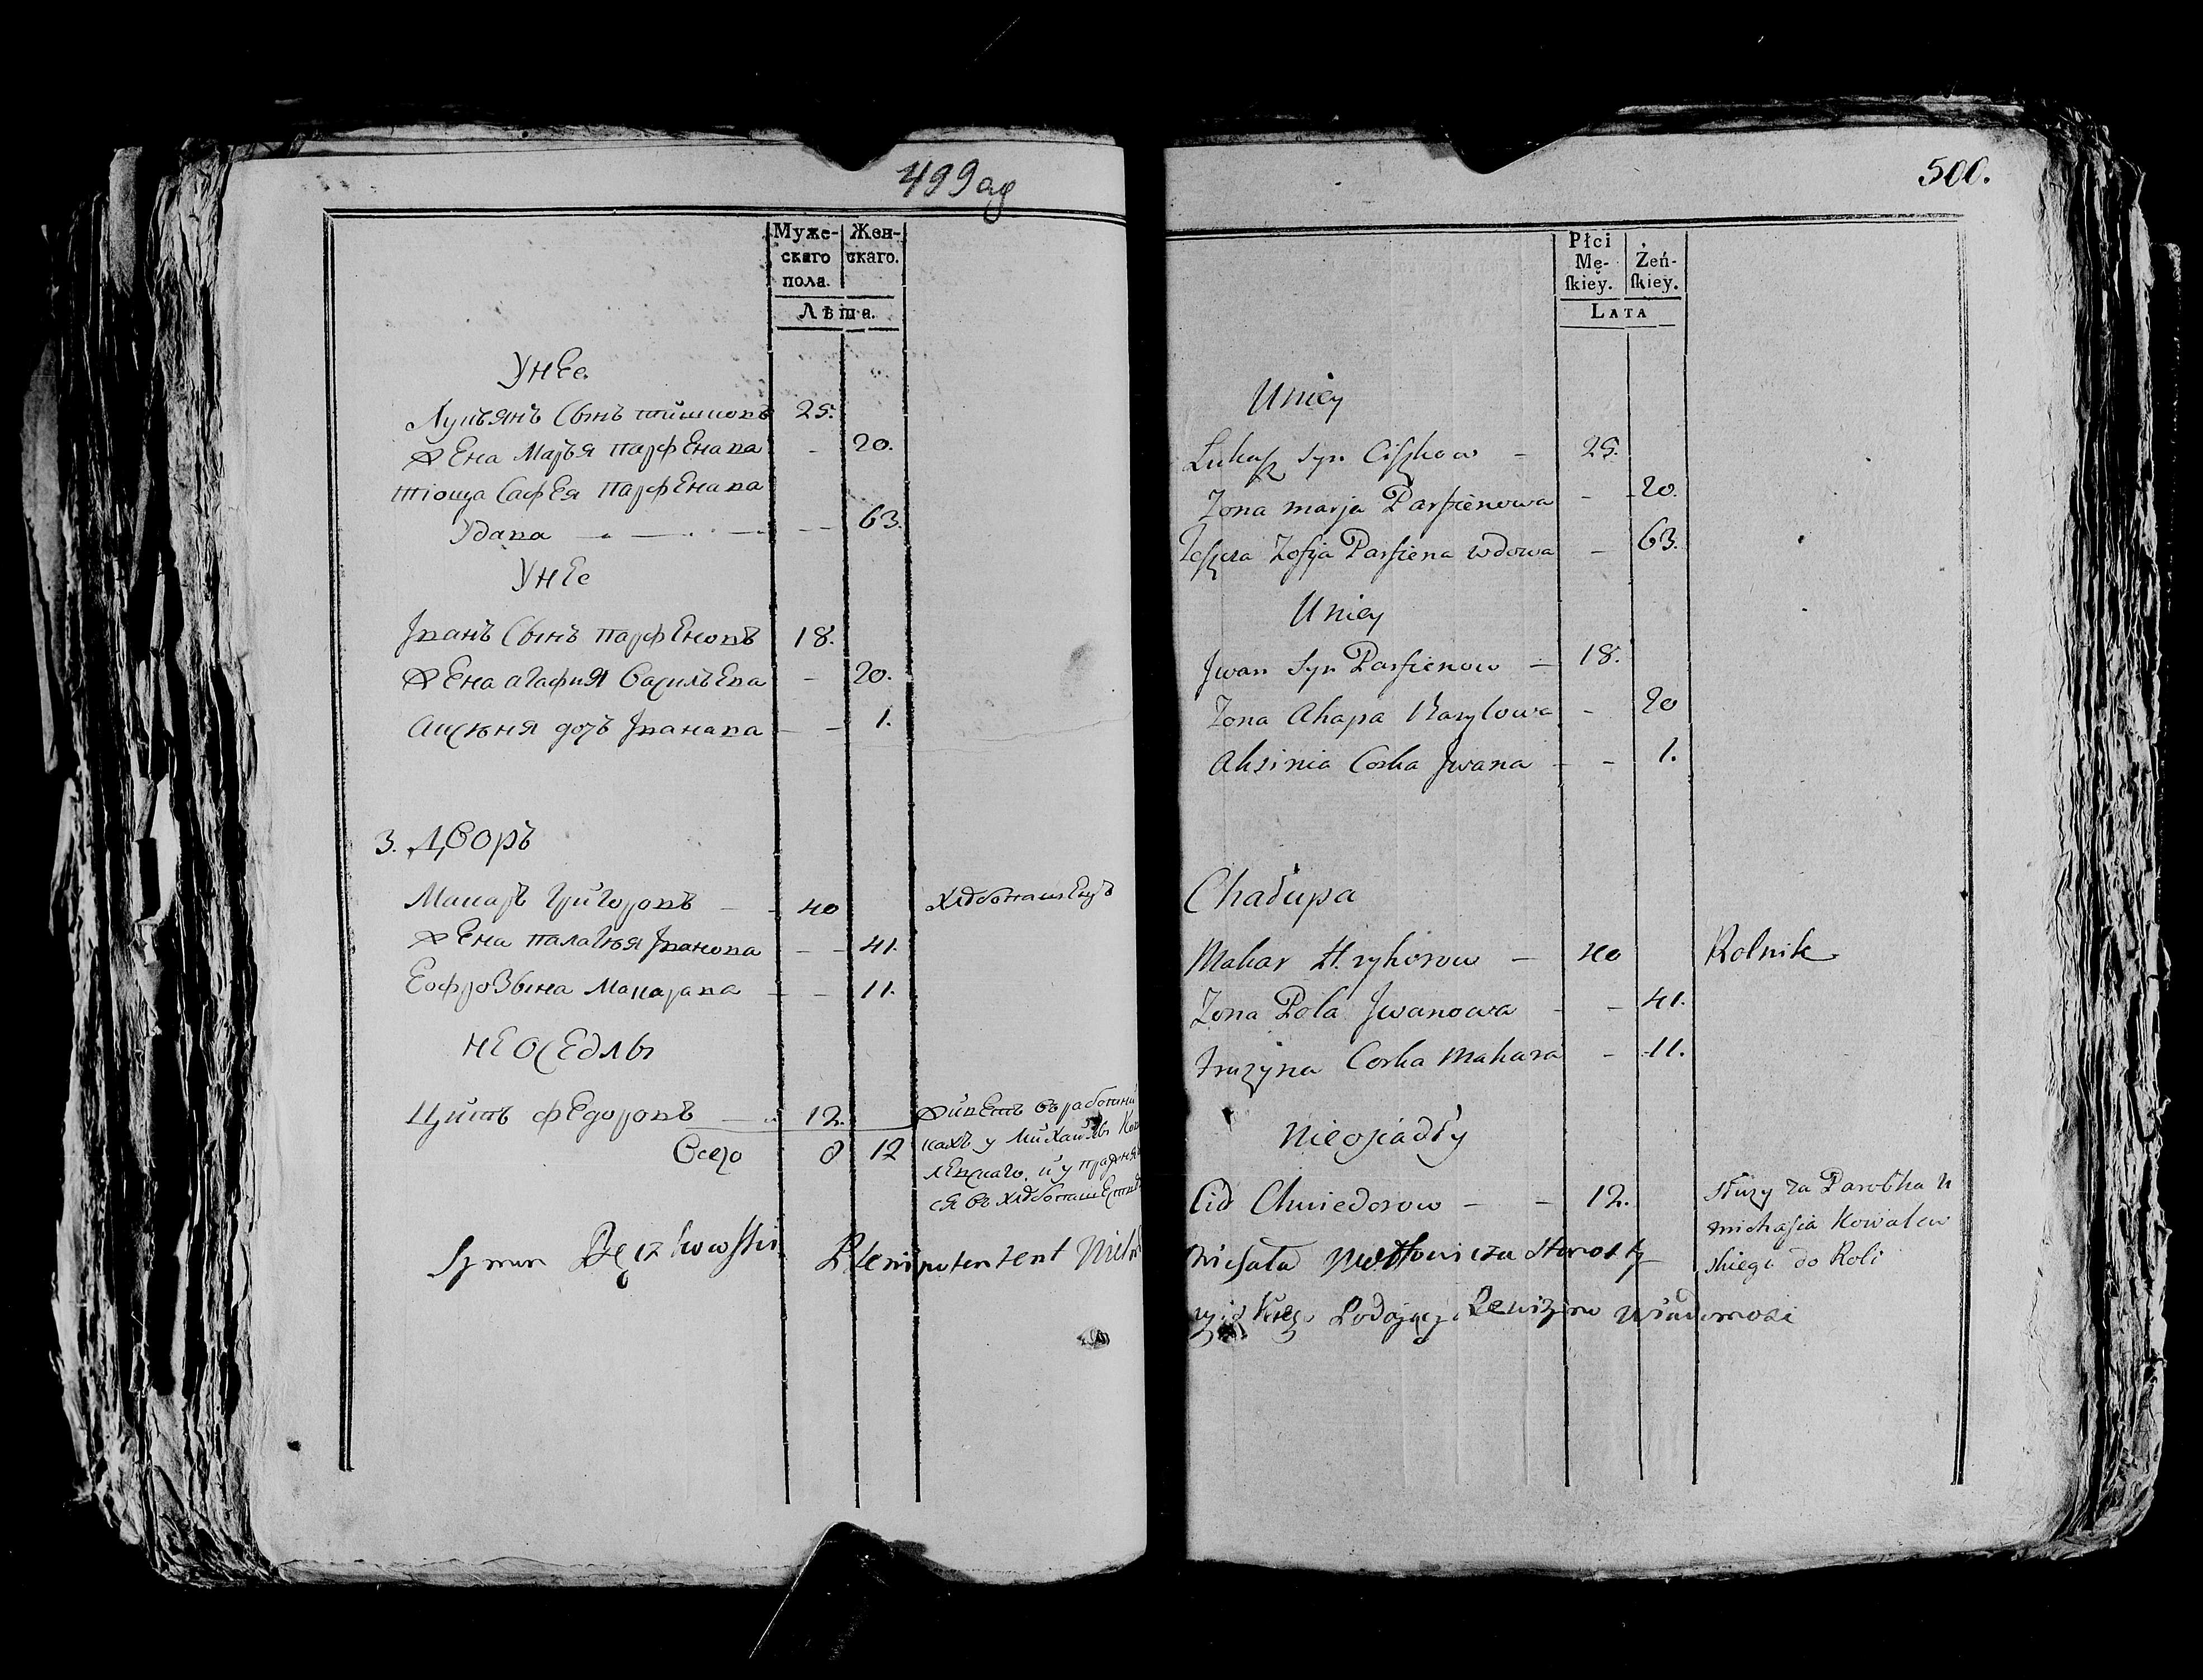 499
Муже-
скаго
пола.
Жен-
скаго.
Лѣта.
Унее
Лукъянъ Сынъ тишковъ 25.
Жена Марья парфенава - 20.
тіоща Сафея парфенава
Удава - - 63.
Унее
Іванъ Сынъ парфеновъ 18.
Жена агафия Василъева - 20.
аксюня дочъ Іванава - 1.
3. Дворъ
Макаръ Григоровъ - 40 хлѣбопашецъ
Жена палагѣя Іванова - 41.
Еофрозына Макарава - 11.
неоседлы
Цитъ Федоровъ - 12. живетъ въ работни
кахъ у Михайлы Ков
левскаго и у
ся въ хлѣбопашестве
Всего 8 12
Plenipotent
500.
Płci
Mę-
ſkiey.
Żeń-
ſkiey.
LATA
Uniey
Lukaſz Syn Ciſzkow - 25.
Zona marja Parfienowa - 20.
Teſzcza Zofja Parfiena wdowa - 63.
Uniey
Jwan Syn Parfienow - 18.
Zona Ahapa Bazylowa - 20
Aksinia Corka Jwana - 1.
Chałupa
Makar Hryhorow - 40 Rolnik
Zona Pola Jwanowa - 41.
Fruzyna Corka Makara - 11.
nieosiadły
Cid Chwiedorow - 12. służy za Parobka u
michasia Kowalew
skiego do Roli
Podający Rewizjną Wiadomość